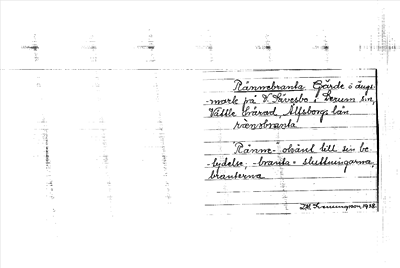 Rännebranta. Gärde o ängs-
-mark på V. Sävesbo i Lerum sn,
Vättle härad, Älfsborgs län
rännᵊbranta
Ränne-" okänt till sin be-
tydelse, -branta = sluttningarna,
branterna
1928